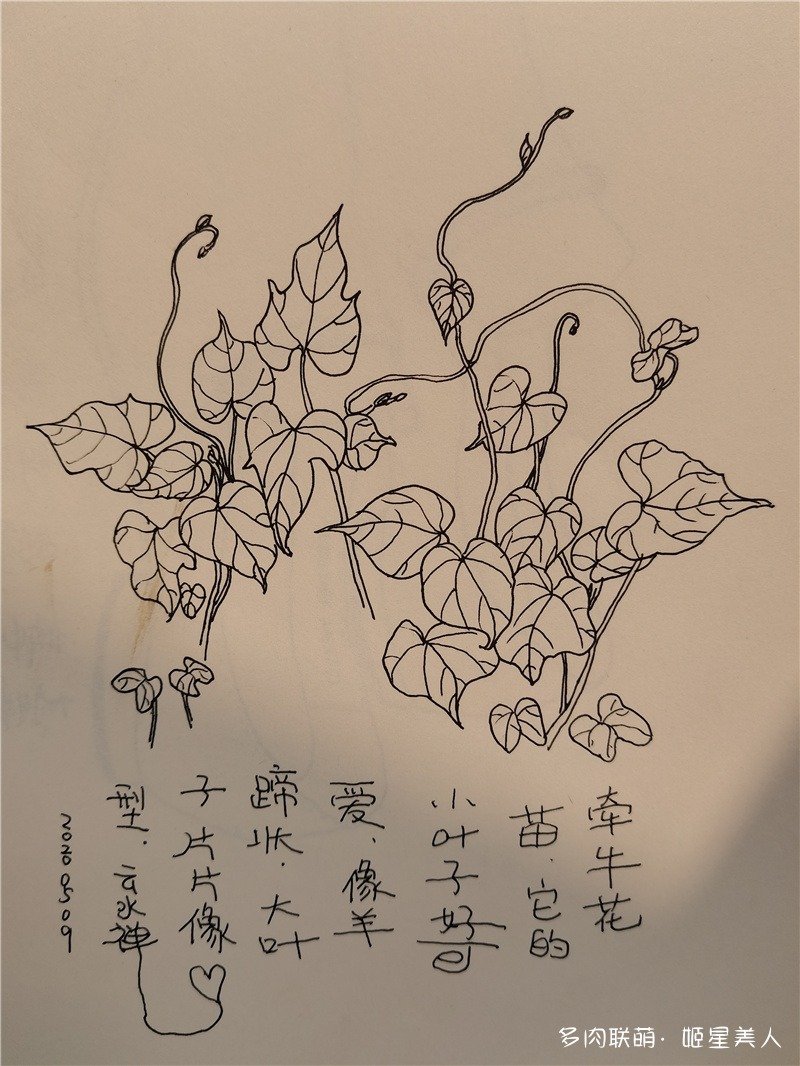 牵牛花
苗.它的
小叶子好可
爱、像羊
蹄状.大叶
子片片像♡
型.云水禅
20200509
多肉联萌·姬星美人